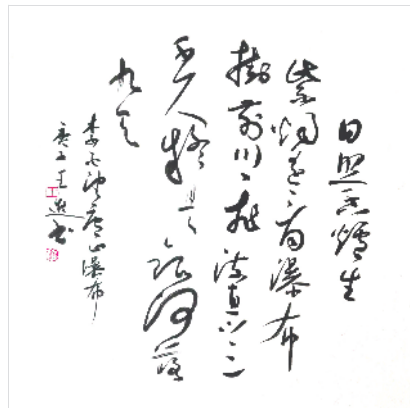 日照香爐生
紫烟遥看瀑布
掛前川飛流直下三
千尺疑是銀河落
九天
李白望廬山瀑布
王書